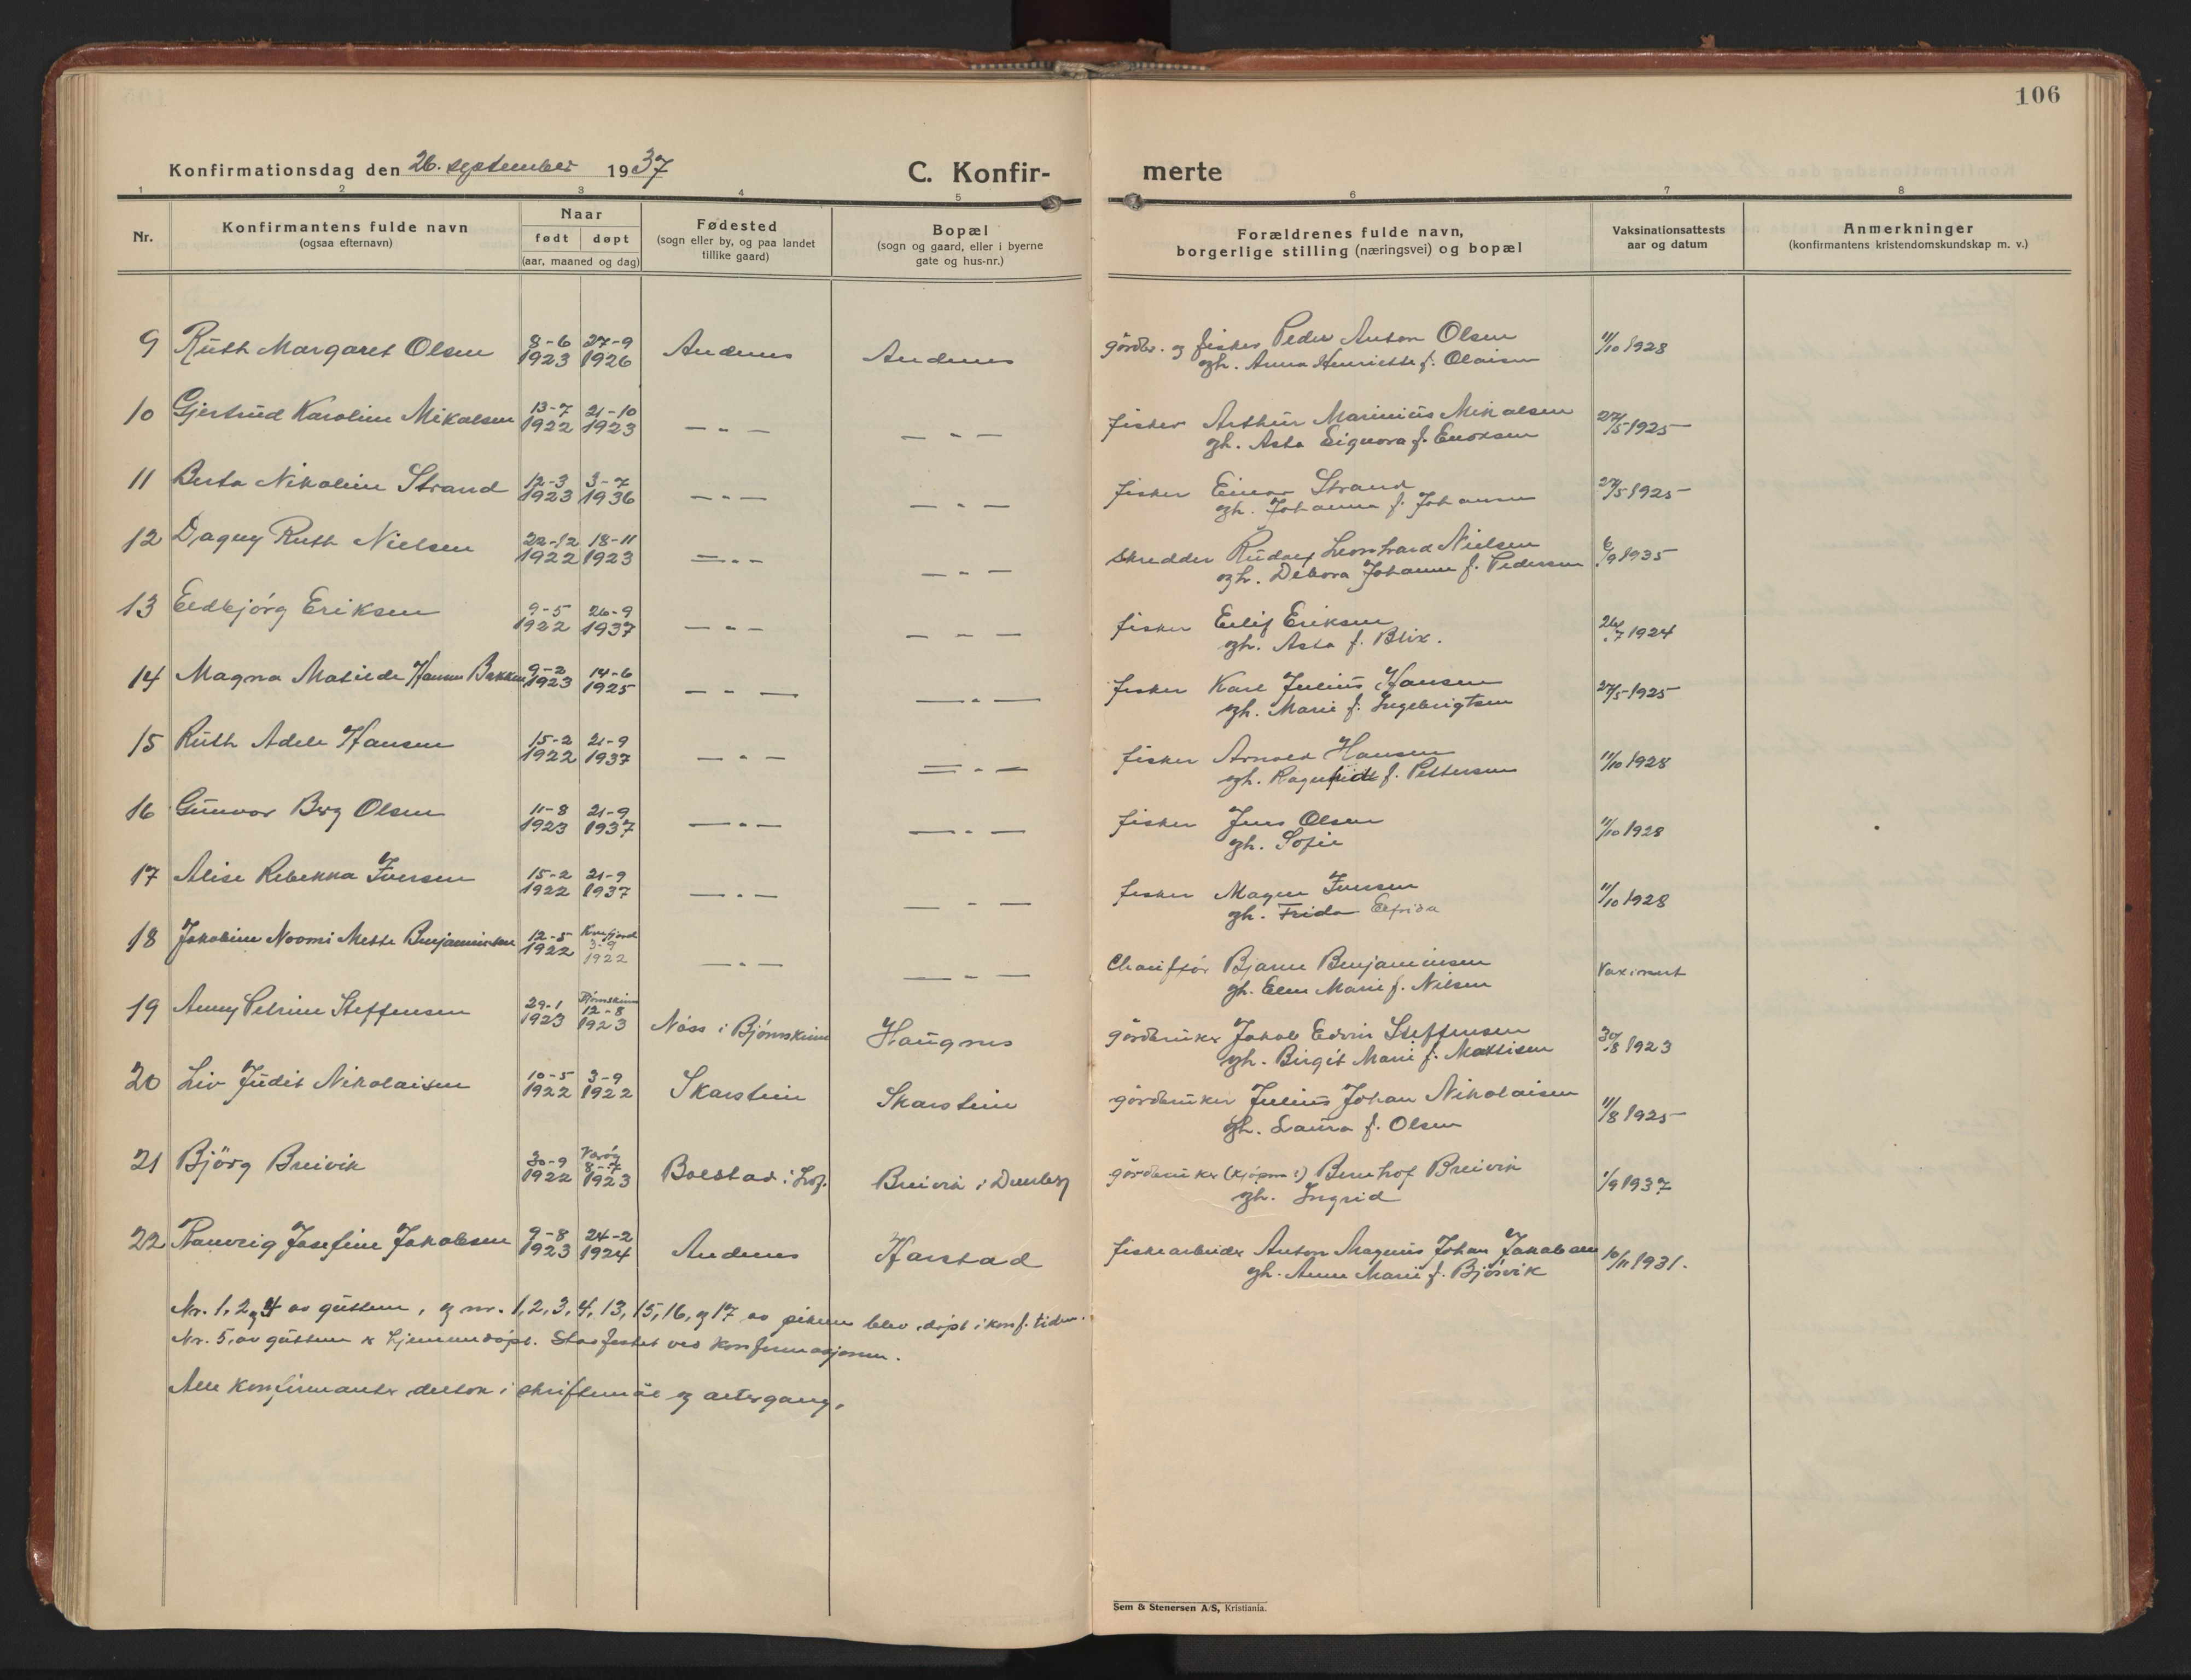 106
Konfirmationsdag den 26. september 1937
C. Konfir- merte
1 2 3 4 5 6 7 8
Nr.
Konfirmantens fulde navn
(ogsaa efternavn)
Naar
født døpt
(aar, maaned og dag)
Fødested
(sogn eller by, og paa landet
tillike gaard)
Bopæl
(sogn og gaard, eller i byerne
gate og hus-nr.)
Forældrenes fulde navn,
borgerlige stilling (næringsvei) og bopæl
Vaksinationsattests
aar og datum
Anmerkninger
(konfirmantens kristendomskundskap m. v.)
9 Ruth Margaret Olsen 8-6 1923 27-9 1926 Andenes Andenes gårdbr. og fisker Peder Anton Olsen 11/10 1928
gh. Anna Henriette f. Olaisen
10 Gjertrud Karoline Mikalsen 13-7 1922 21-10 1923 — " — — " — fisker Arthur Marinius Mikalsen 27/5 1925
gh. Asta Signora f. Enoksen
11 Berta Nikoline Strand 12-3 1923 3-7 1936 — " — — " — fisker Einar Strand 27/5 1925
gh. Johanna f. Johansen
12 Dagny Ruth Nielsen 22-12 1922 18-11 1923 — " — — " — skredder Rudolf Leonhard Nielsen 6/9 1935
gh. Debora Johanne f. Pedersen
13 Eldbjørg Eriksen 9-5 1922 26-9 1937 — " — — " — fisker Eilif Eriksen 24/7 1924
gh. Asta f. Blix.
14 Magna Matilde Hansen Bakken 9-2 1923 14-6 1925 — " — — " — fisker Karl Julius Hansen 27/5 1925
gh. Marie f. Ingebrigtsen
15 Ruth Adele Hansen 15-2 1922 21-9 1937 — " — — " — fisker Arnold Hansen 11/10 1928
gh. f. Pettersen
16 Gunvor Berg Olsen 11-8 1923 21-9 1937 — " — — " — fisker Jens Olsen 11/10 1928
gh. Sofie
17 Alise Rebekka Iversen 15-2 1922 21-9 1937 — " — — " — fisker Magne Iversen 11/10 1928
gh. Frida Elfrida
18 Jakobine Noomi Mette Benjaminsen 12-5 1922 3-9 1922 — " — — " — Chauffør Bjarne Benjaminsen Vaxinert
gh. Elen Marie f. Nilsen
19 Anny Petrine Steffensen 29-1 1923 Bjørnskinn 12-8 1923 Nöss i Bjørnskinn Haugnes gårdbruker Jakob Edvin Steffensen 30/8 1923
gh. Birgit Marie f. Mattisen
20 Liv Judit Nikolaisen 10-5 1922 3-9 1922 Skarstein Skarstein gårdbruker Julius Johan Nikolaisen 11/8 1925
gh. Laura f. Olsen
21 Björg Breivik 30-9 1922 Værøy 8-7 1923 Bolstad i Lof. Breivik i gårdbruker Bernhof Breivik 1/9 1937
gh. Ingrid
22 Ranveig Josefine Jakobsen 9-8 1923 24-2 1924 Andenes Harstad fiskearbeider Anton Magnus Johan Jakobsen 10/11 1931.
gh. Anne Marie f. Bjørvik
Nr. 1, 2 og 4 av guttene, og nr. 1, 2, 3, 4, 13, 15, 16, og 17 av pikene blev døpt i konf. tiden.
Nr. 5, av guttene er hjemmedøpt. Stadfestet ved konfirmasjonen.
Alle konfirmanter deltok i skriftemål og altergang.
Sem & Stenersen A/S, Kristiania.